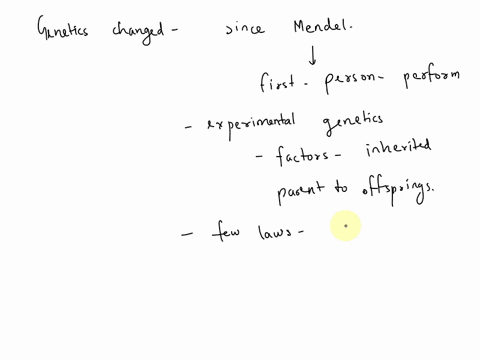 Genetics changed - since Mendel.
↓
first - person - perform
- experimental genetics
- factors - inherited
parent to offsprings.
- few laws -